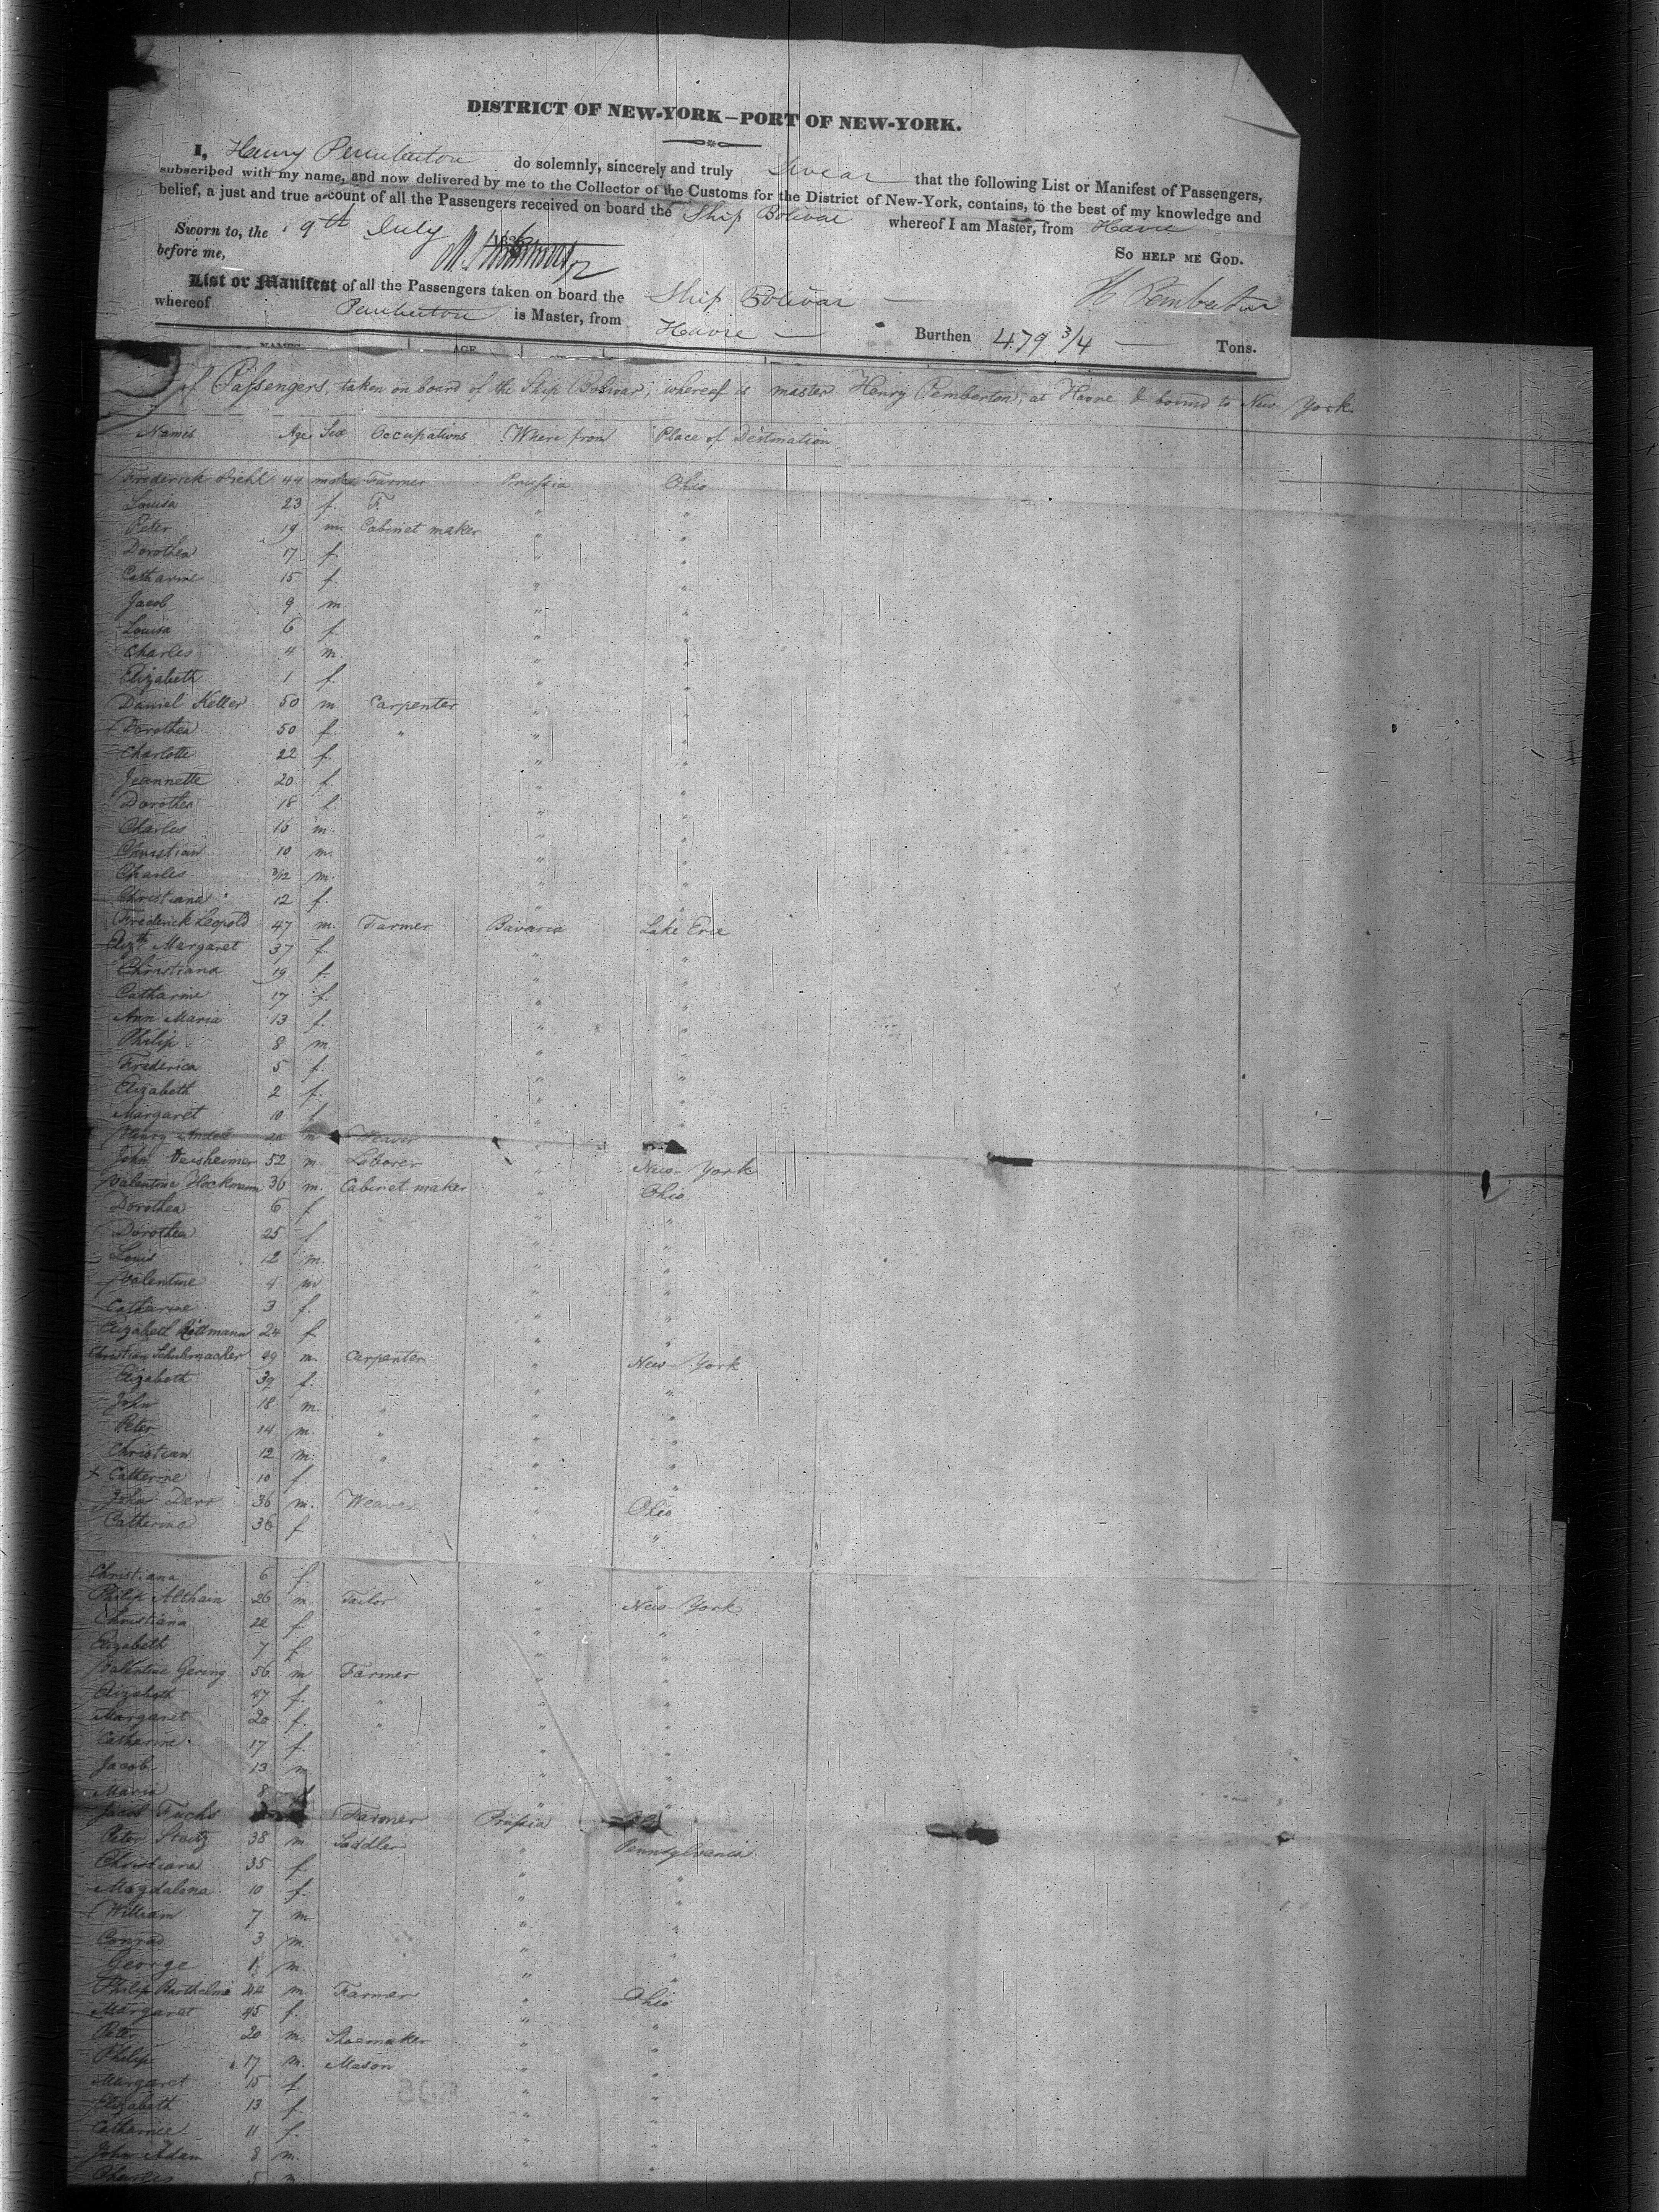 DISTRICT OF NEW-YORK—PORT OF NEW-YORK.
I, Henry Pemberton do solemnly, sincerely and truly Swear that the following List or Manifest of Passengers,
subscribed with my name, and now delivered by me to the Collector of the Customs for the District of New-York, contains, to the best of my knowledge and
belief, a just and true account of all the Passengers received on board the Ship Bolivar whereof I am Master, from Havre
Sworn to, the 9th July 183
So help me God.
before me,
H Pemberton
List or Manifest of all the Passengers taken on board the Ship Bolivar
whereof Pemberton is Master, from Havre Burthen 479 3/4 Tons.
NAMES AGE
of Passengers, taken on board of the Ship Bolivar, whereof is master Henry Pemberton, at Havre & bound to New York.
Names Age Sex Occupations Where from Place of Destination
Frederick Diehl 44 male Farmer Prussia Ohio
Louisa 23 f. F. " "
Peter 19 m. Cabinet maker " "
Dorothea 17 f. " "
Catharine 15 f. " "
Jacob 9 m. " "
Louisa 6 f. " "
Charles 4 m. " "
Elizabeth 1 f. " "
Daniel Keller 50 m Carpenter " "
Dorothea 50 f. " " "
Charlotte 22 f. " "
Jeannette 20 f. " "
Dorothea 18 f. " "
Charles 16 m. " "
Christian 10 m. " "
Charles 3/12 m. " "
Christiana 12 f. " "
Frederick Leopold 47 m. Farmer Bavaria Lake Erie
Elizth Margaret 37 f. " "
Christiana 19 f. " "
Catharine 17 f. " "
Ann Maria 13 f. " "
Philip 8 m. " "
Frederica 5 f. " "
Elizabeth 2 f. " "
Margaret 10 f. " "
Henry m Weaver "
John 52 m. Laborer " New-York
Valentine Hockmann 36 m. Cabinet maker " Ohio
Dorothea 6 f " "
Dorothea 25 f " "
Louis 12 m. " "
Valentine 4 m " "
Catharine 3 f. " "
Elizabeth 24 f. " "
Christian Schuhmacker 49 m. Carpenter " New-York
Elizabeth 39 f. " "
John 18 m. " " "
Peter 14 m. " " "
Christian 12 m. " " "
Catherine 10 f. " "
John Derr 36 m. Weaver " Ohio
Catherine 36 f " "
Christiana 6 f. " "
Philip Althain 26 m Tailor " New-York
Christiana 22 f. " "
Elizabeth 7 f. " "
Valentine Gering 56 m Farmer " "
Elizabeth 47 f. " " "
Margaret 20 f. " " "
Catharine 17 f. " "
Jacob 13 m " "
Maria 8 f " "
Jacob Fuchs Farmer Prussia
Peter 38 m. Saddler " Pennsylvania
Christiana 35 f. " "
Magdalena 10 f. " "
William 7 m. " "
Conrad 3 m. " "
George 1 m. " "
Philip 42 m. Farmer " Ohio
Margaret 45 f. " "
Peter 20 m. Shoemaker " "
Philip 17 m. Mason " "
Margaret 15 f. " "
Elizabeth 13 f. " "
Catharine 11 f. " "
John Adam 8 m. " "
Charles 5 m